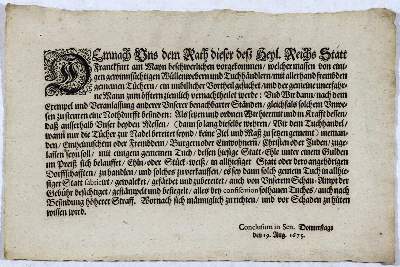 DEmnach Uns dem Rath dieser deß Heyl. Reichs Statt
Franckfurt am Mayn beschwerlichen vorgekommen / welcher massen von eini-
gen gewinnsüchtigen Wüllenwebern und Tuchhändlern / mit allerhand frembden
gemeinen Tüchern / ein unbillicher Vortheil gesuchet / und der gemeine unerfahr-
ne Mann zum öfftern ziemlich vernachtheilet werde: Und Wir dann / nach dem
Exempel und Veranlassung anderer Unserer benachbarter Ständen / gleichfals solchem Unwe-
sen zu steuren eine Nothdurfft befinden: Als setzen und ordnen Wir hiermit und in Krafft dieses /
daß ausserhalb Unser beyden Messen / (dann so lang dieselbe wehren / Wir den Tuchhandel /
wann nur die Tücher zur Nadel bereitet seynd / keine Ziel und Maß zu setzen gemeint) nieman-
den / Einheimischem oder Frembdem / Burgern oder Einwohnern / Christen oder Juden / zuge-
lassen seyn soll / mit einigem gemeinen Tuch / dessen hiesige Statt-Ehle unter einem Gulden
im Preiß sich belaufft / Ehln- oder Stück-weiß / in allhiesiger Statt oder dero angehörigen
Dorffschafften / zu handlen / und solches zu verkauffen / es sey dann solch gemein Tuch in allhie-
siger Statt fabricirt / gewalcket / gefärbet und zubereitet / auch von Unserm Schau-Ampt der
Gebühr besichtiget / gestämpelt und besiegelt / alles bey confiscation sothanen Tuches / auch nach
Befindung höherer Straff. Wornach sich männiglich zurichten / und vor Schaden zu hüten
wissen wird.
Conclusum in Sen. Donnerstags
den 19. Aug. 1675.